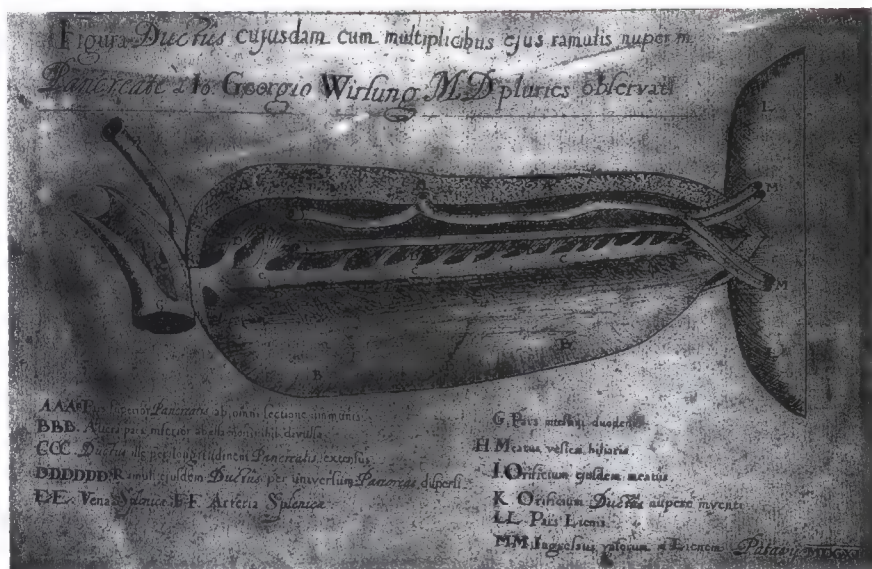 Figura Ductus cujusdam cum multiplicibus ejus ramulis nuper in
Pancreate à Io. Georgio Wirsung M.D. pluries observati
AAA. Pars superior Pancreatis ab omni sectione immunis
BBB. pars inferior
CCC Ductus ille per longitudinem Pancreatis extensus
DDDDDD. Ramuli ejusdem Ductus per universum Pancreas dispersi
EE. Vena Splenica FF Arteria Splenica
G. Pars intestini duodeni
H Meatus vesicæ biliaris
I. Orificium ejusdem meatus
K. Orificium Ductus nupere inventi
LL Pars Lienis
MM. Ingressus vasorum in Lienem Patavij
L
M
M
G
D
C
C
C
B
B